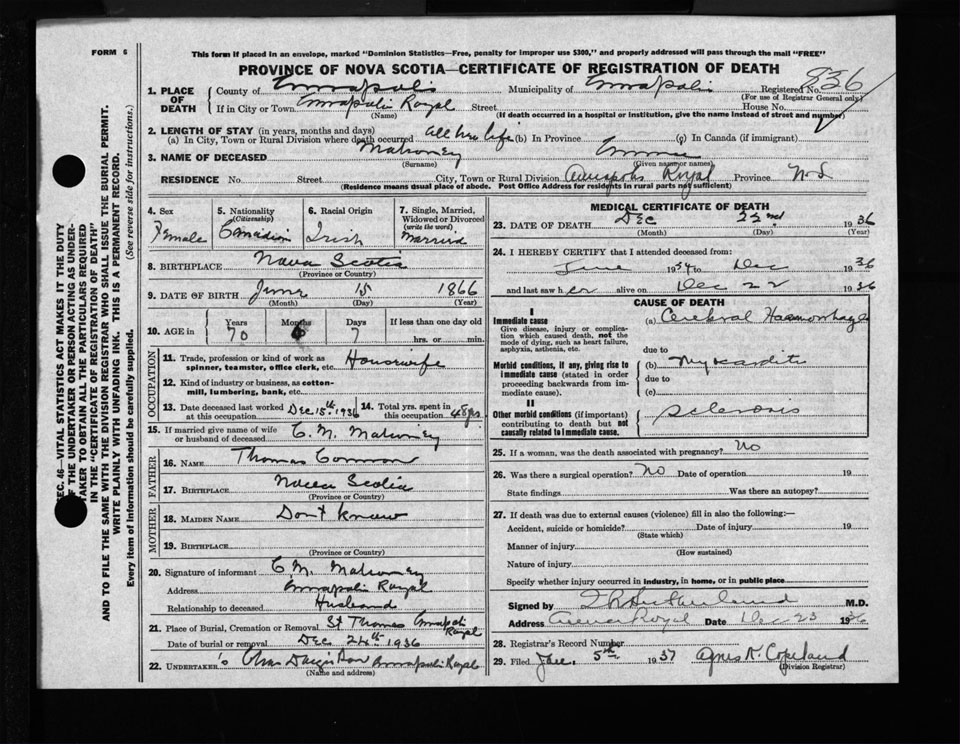 FORM 6
This form if placed in an envelope, marked "Dominion Statistics—Free, penalty for improper use $300," and properly addressed will pass through the mail "FREE"
PROVINCE OF NOVA SCOTIA—CERTIFICATE OF REGISTRATION OF DEATH
836
1. PLACE OF DEATH
County of Annapolis Municipality of Annapolis Registered No.
(For use of Registrar General only)
If in City or Town Annapolis Royal Street House No.
(Name) (If death occurred in a hospital or institution, give the name instead of street and number)
2. LENGTH OF STAY (in years, months and days)
(a) In City, Town or Rural Division where death occurred all her life (b) In Province (c) In Canada (if immigrant)
3. NAME OF DECEASED Mahoney Emma
(Surname) (Given name or names)
RESIDENCE No. Street City, Town or Rural Division Annapolis Royal Province N.S.
(Residence means usual place of abode. Post Office Address for residents in rural parts not sufficient)
4. Sex Female
5. Nationality (Citizenship) Canadian
6. Racial Origin Irish
7. Single, Married, Widowed or Divorced (write the word) Married
8. BIRTHPLACE Nova Scotia
(Province or Country)
9. DATE OF BIRTH June 15 1866
(Month) (Day) (Year)
10. AGE in Years Months Days If less than one day old
70 6 7 hrs. or min.
OCCUPATION
11. Trade, profession or kind of work as spinner, teamster, office clerk, etc. Housewife
12. Kind of industry or business, as cotton-mill, lumbering, bank, etc.
13. Date deceased last worked at this occupation Dec 15th 1936
14. Total yrs. spent in this occupation 48 yrs
15. If married give name of wife or husband of deceased C. M. Mahoney
FATHER
16. NAME Thomas
17. BIRTHPLACE Nova Scotia
(Province or Country)
MOTHER
18. MAIDEN NAME Don't know
19. BIRTHPLACE
(Province or Country)
20. Signature of informant C M. Mahoney
Address Annapolis Royal
Relationship to deceased Husband
21. Place of Burial, Cremation or Removal St Thomas Annapolis Royal
Date of burial or removal Dec 24th 1936
22. UNDERTAKER's Annapolis Royal
(Name and address)
MEDICAL CERTIFICATE OF DEATH
23. DATE OF DEATH Dec 22nd 1936
(Month) (Day) (Year)
24. I HEREBY CERTIFY that I attended deceased from:
June 1934 to Dec 1936
and last saw her alive on Dec 22 1936
CAUSE OF DEATH
I
Immediate cause
Give disease, injury or complication which caused death, not the mode of dying, such as heart failure, asphyxia, asthenia, etc.
(a) Cerebral Haemorrhage
due to
Morbid conditions, if any, giving rise to immediate cause (stated in order proceeding backwards from immediate cause).
(b) Myocarditis
due to
(c)
II
Other morbid conditions (if important) contributing to death but not causally related to immediate cause.
Sclerosis
25. If a woman, was the death associated with pregnancy? No
26. Was there a surgical operation? No Date of operation 19
State findings Was there an autopsy?
27. If death was due to external causes (violence) fill in also the following:—
Accident, suicide or homicide? Date of injury 19
(State which)
Manner of injury
(How sustained)
Nature of injury
Specify whether injury occurred in industry, in home, or in public place
Signed by M.D.
Address Royal Date Dec 23 1936
28. Registrar's Record Number
29. Filed 5th 1937 Agnes R. Copeland
(Division Registrar)
SEC. 46—VITAL STATISTICS ACT MAKES IT THE DUTY
OF THE UNDERTAKER OR PERSON ACTING AS UNDER-
TAKER TO OBTAIN ALL THE PARTICULARS REQUIRED
IN THE "CERTIFICATE OF REGISTRATION OF DEATH"
AND TO FILE THE SAME WITH THE DIVISION REGISTRAR WHO SHALL ISSUE THE BURIAL PERMIT.
WRITE PLAINLY WITH UNFADING INK. THIS IS A PERMANENT RECORD.
Every item of information should be carefully supplied. (See reverse side for instructions.)